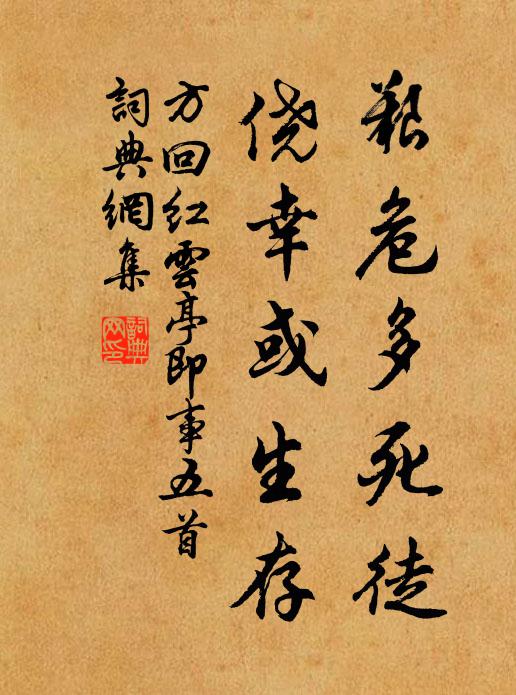 艱危多死徒
侥幸或生存
方回红雲亭即事五首
詞典網集
詞典網印